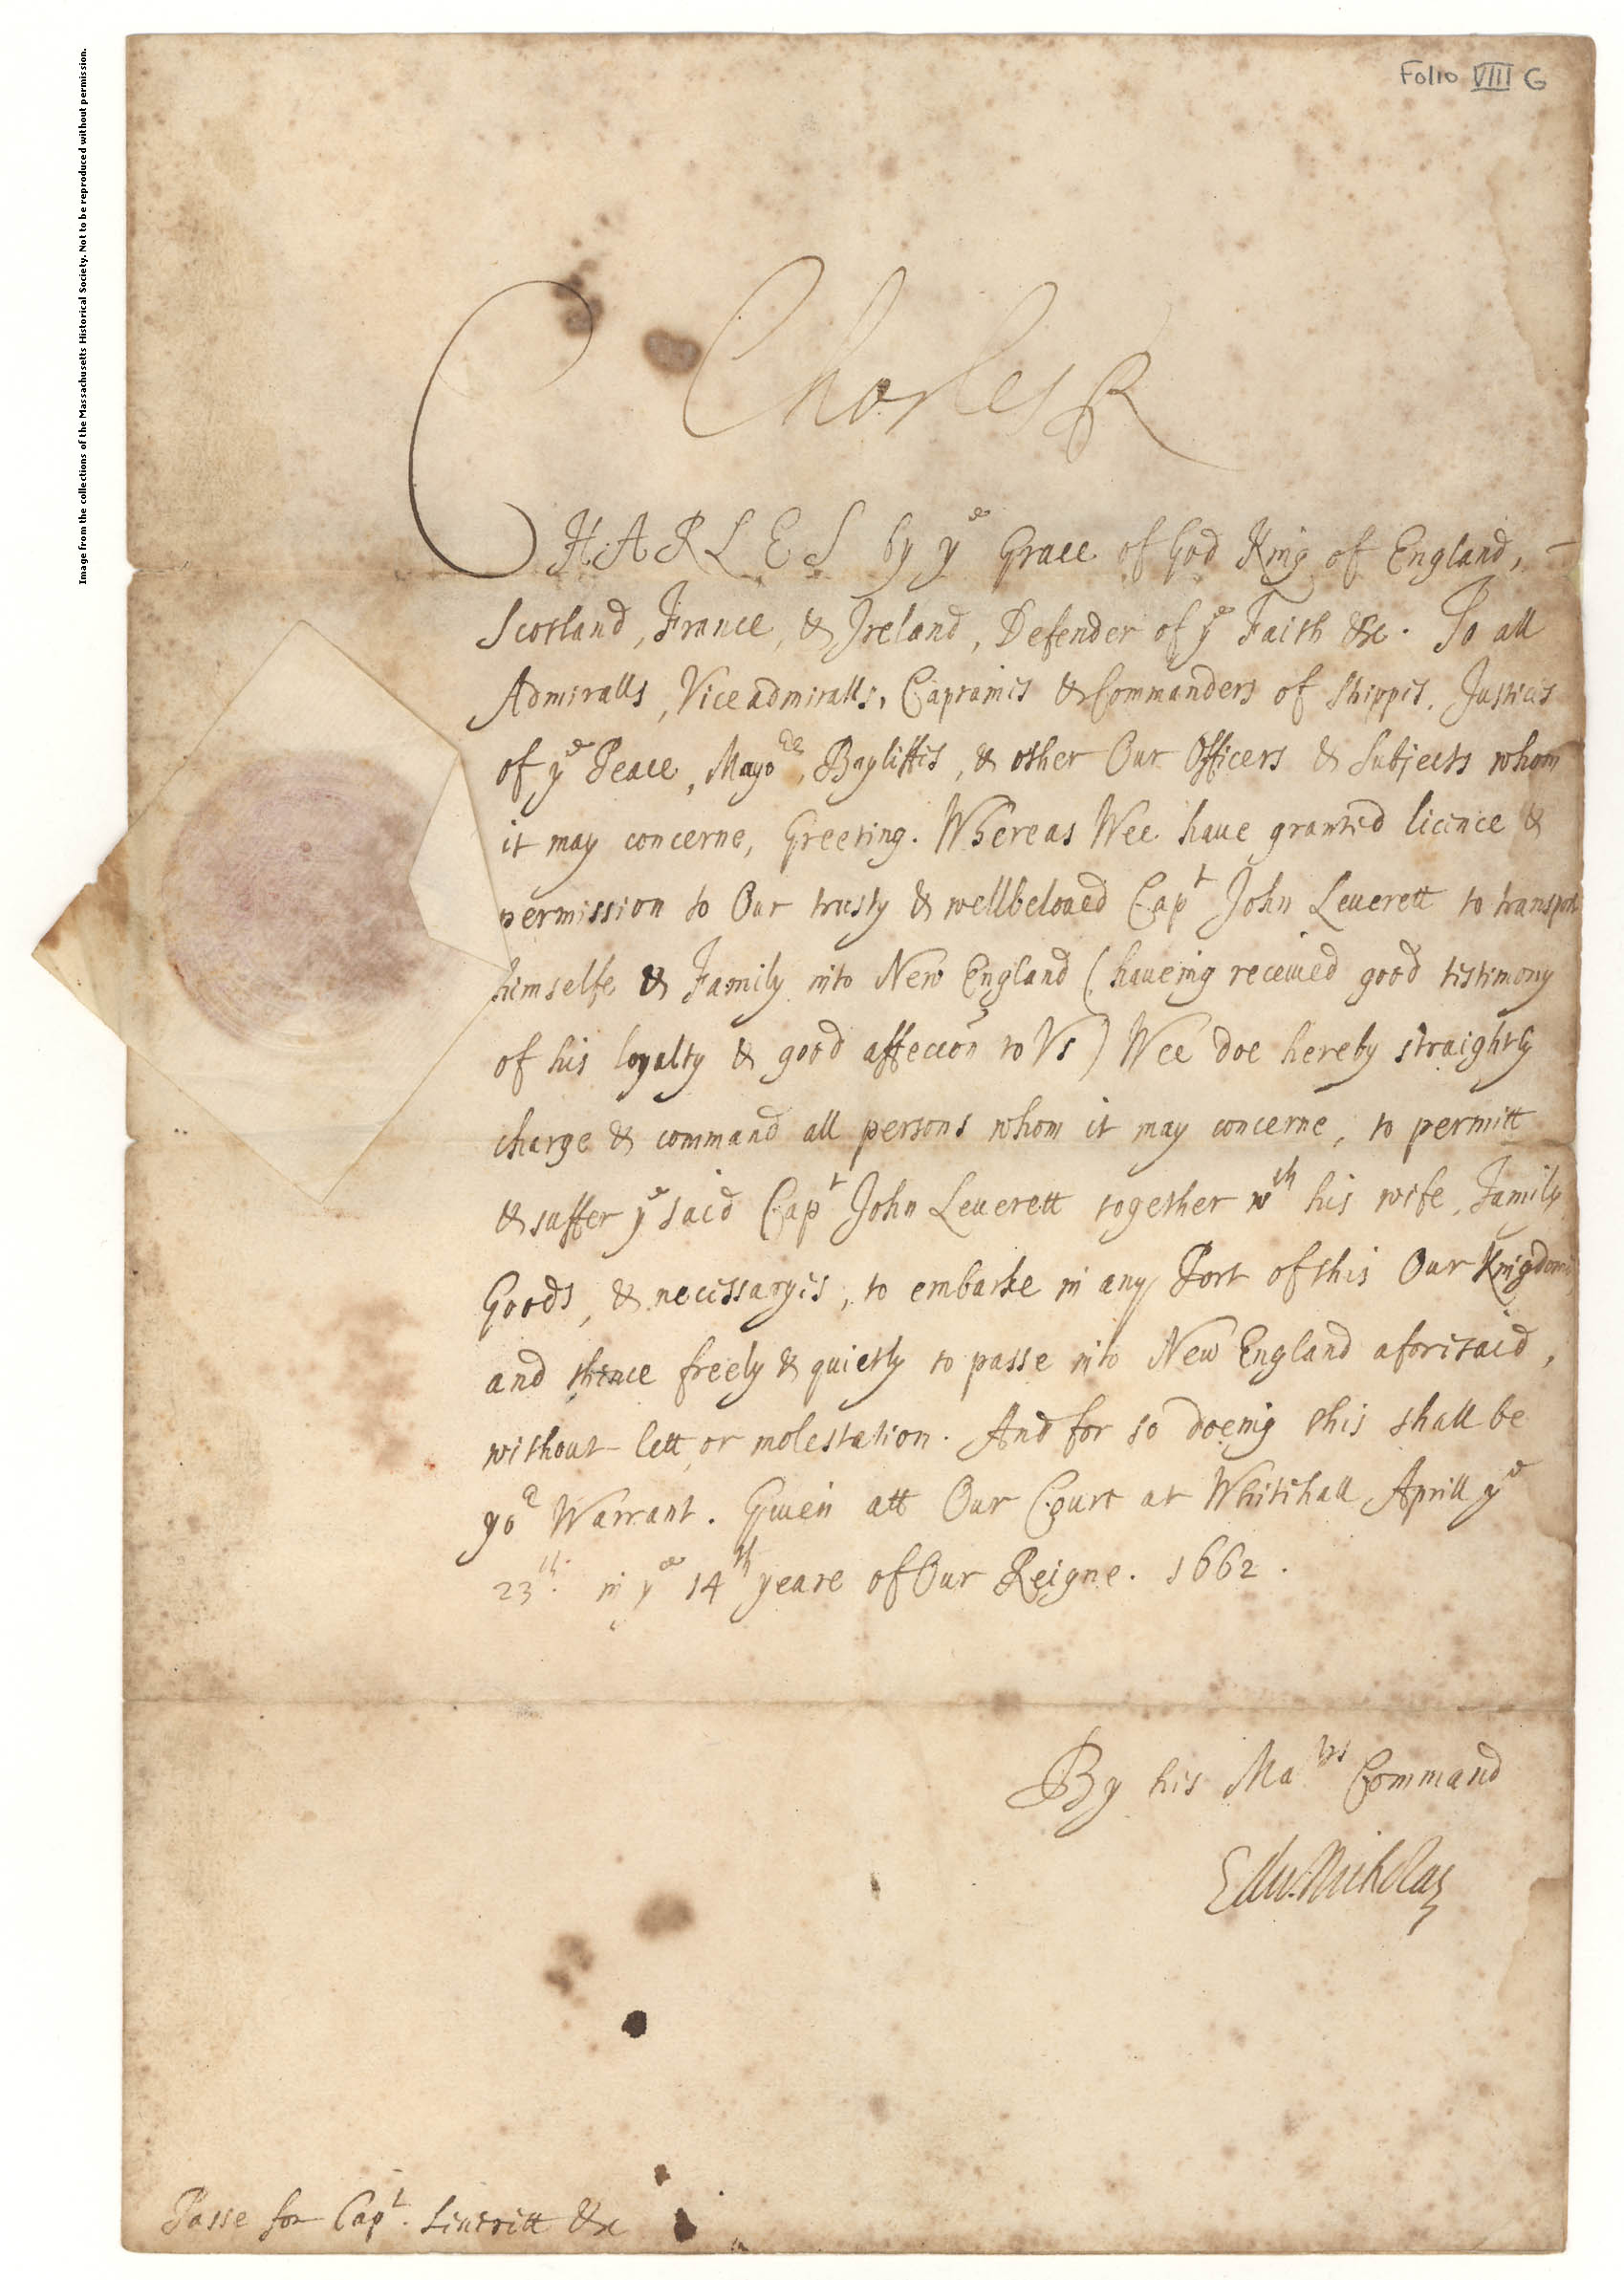 Image from the collections of the Massachusetts Historical Society. Not to be reproduced without permission.
Folio VIII G
Charles R
CHARLES by yͤ Grace of God King of England,
Scotland, France, & Ireland, Defender of yͤ Faith &c. To all
Admiralls, Viceadmiralls, Captaines & Commanders of Shippes, Justices
of yͤ Peace, Mayoʳˢ, Bayliffes, & other Our Officers & Subjects whom
it may concerne, Greeting. Whereas Wee haue granted licence &
permission to Our trusty & wellbeloued Capᵗ John Leuerett to transport
himselfe & Family into New England (haueing receiued good testimony
of his loyalty & good affeccōn to Vs) Wee doe hereby straightly
charge & command all persons whom it may concerne, to permitt
& suffer yͤ said Capᵗ John Leuerett together wᵗʰ his wife, Family
Goods, & necessaryes, to embarke in any Port of this Our Kingdome,
and thence freely & quietly to passe into New England aforesaid,
without lett or molestation. And for so doeing this shall be
yoʳ Warrant. Giuen att Our Court at Whitehall Aprill yͤ
23ᵗʰ. in yͤ 14ᵗʰ yeare of Our Reigne. 1662.
By his Maᵗⁱᵉˢ Command
Edw. Nicholas
Passe for Capᵗ. Leueritt &c